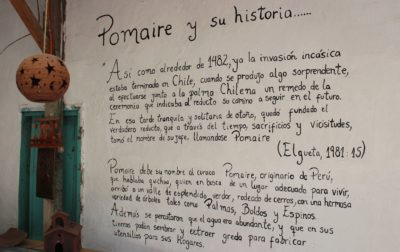 Pomaire y su historia......
"Asi como alrededor de 1482, ya la invasión incásica
estaba terminada en Chile, cuando se produjo algo sorprendente,
al efectuarse junto a la palma Chilena un remedo de la
ceremonia que indicaba al reducto su camino a seguir en el futuro.
En esa tarde tranquila y solitaria de otoño, quedó fundado el
verdadero reducto, que a través del tiempo, sacrificios y vicisitudes,
tomó el nombre de su jefe, llamándose Pomaire
(Elgueta, 1981:15)
Pomaire debe su nombre al curaca Pomaire, originario de Perú,
que hablaba quechua, quien en busca de un lugar adecuado para vivir,
arribó a un valle de esplendido verdor, rodeado de cerros, con una hermosa
variedad de árboles tales como Palmas, Boldos y Espinos.
Además se percataron que el agua era abundante, y que en sus
tierras podían sembrar y extraer greda para fabricar
utensilios para sus hogares.